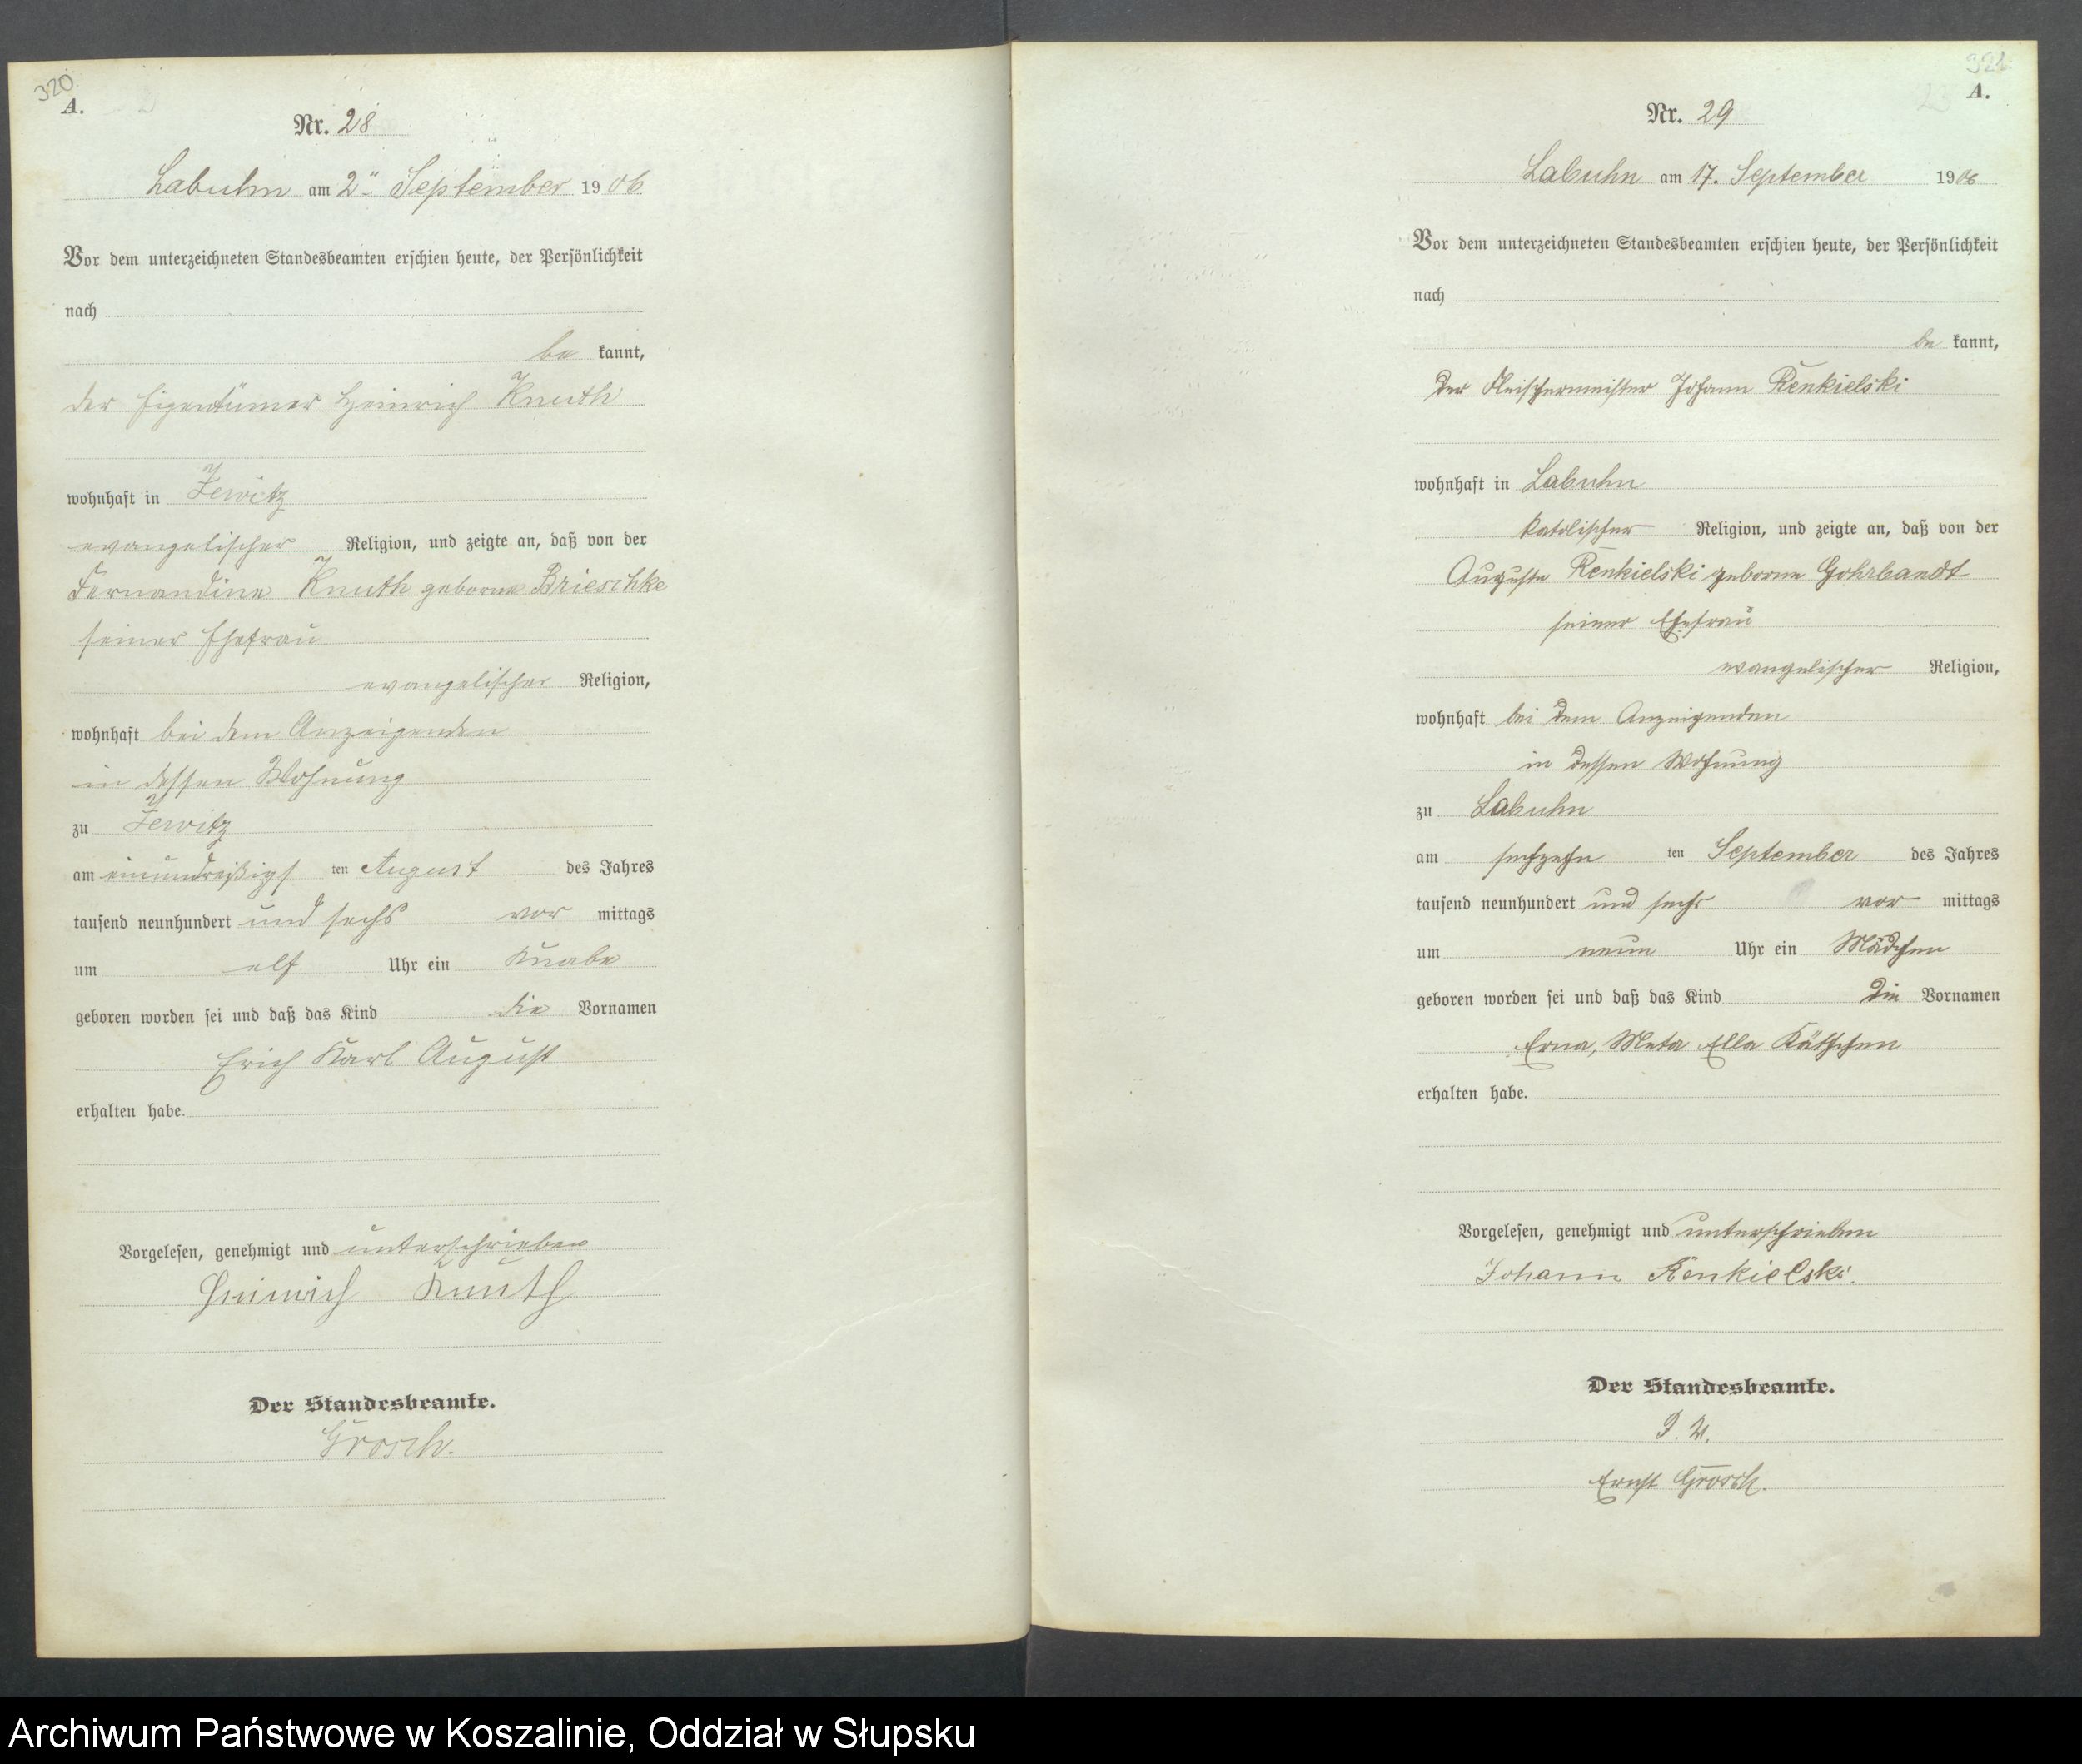 320
A.
Nr. 28
Labuhn am 2ten September 1906
Vor dem unterzeichneten Standesbeamten erschien heute, der Persönlichkeit
nach
be kannt,
der Eigentümer Heinrich Knuth
wohnhaft in Zewitz
evangelischer Religion, und zeigte an, daß von der
Fernandine Knuth geborne Brieschke
seiner Ehefrau
evangelischer Religion,
wohnhaft bei dem Anzeigenden
in dessen Wohnung
zu Zewitz
am einundreißigs ten August des Jahres
tausend neunhundert und sechs vor mittags
um elf Uhr ein Knabe
geboren worden sei und daß das Kind die Vornamen
Erich Karl August
erhalten habe.
Vorgelesen, genehmigt und unterschrieben
Heinrich Knuth
Der Standesbeamte.
Grosch.
A.
Nr. 29
Labuhn am 17. September 1906
Vor dem unterzeichneten Standesbeamten erschien heute, der Persönlichkeit
nach
be kannt,
der Fleischermeister Johann Renkielski
wohnhaft in Labuhn
katolischer Religion, und zeigte an, daß von der
Auguste Renkielski geborne Gohrbandt
seiner Ehefrau
evangelischer Religion,
wohnhaft bei dem Anzeigenden
in dessen Wohnung
zu Labuhn
am sechzehn ten September des Jahres
tausend neunhundert und sechs vor mittags
um neun Uhr ein Mädchen
geboren worden sei und daß das Kind die Vornamen
Erna, Meta Ella Käthchen
erhalten habe.
Vorgelesen, genehmigt und unterschrieben
Johann Renkielski.
Der Standesbeamte.
Ernst Grosch.
Archiwum Państwowe w Koszalinie, Oddział w Słupsku